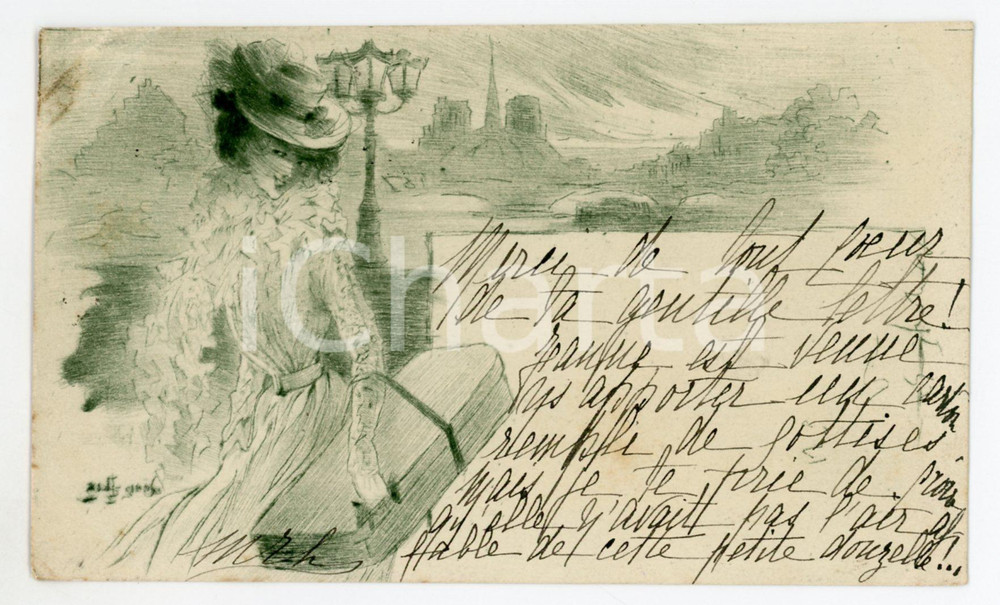 Merci de tout cœur
de ta gentille lettre!
est venue
ns apporter un carton
rempli de sottises
mais je te prie de croire
qu'elle n'avait pas l'air af
fable de cette petite donzelle!...
iCharta